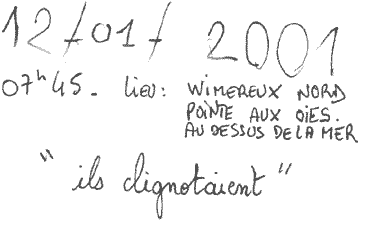 12/01/2001
07h45. lieu: WIMEREUX NORD
POINTE AUX OIES.
AU DESSUS DE LA MER
"ils clignotaient"